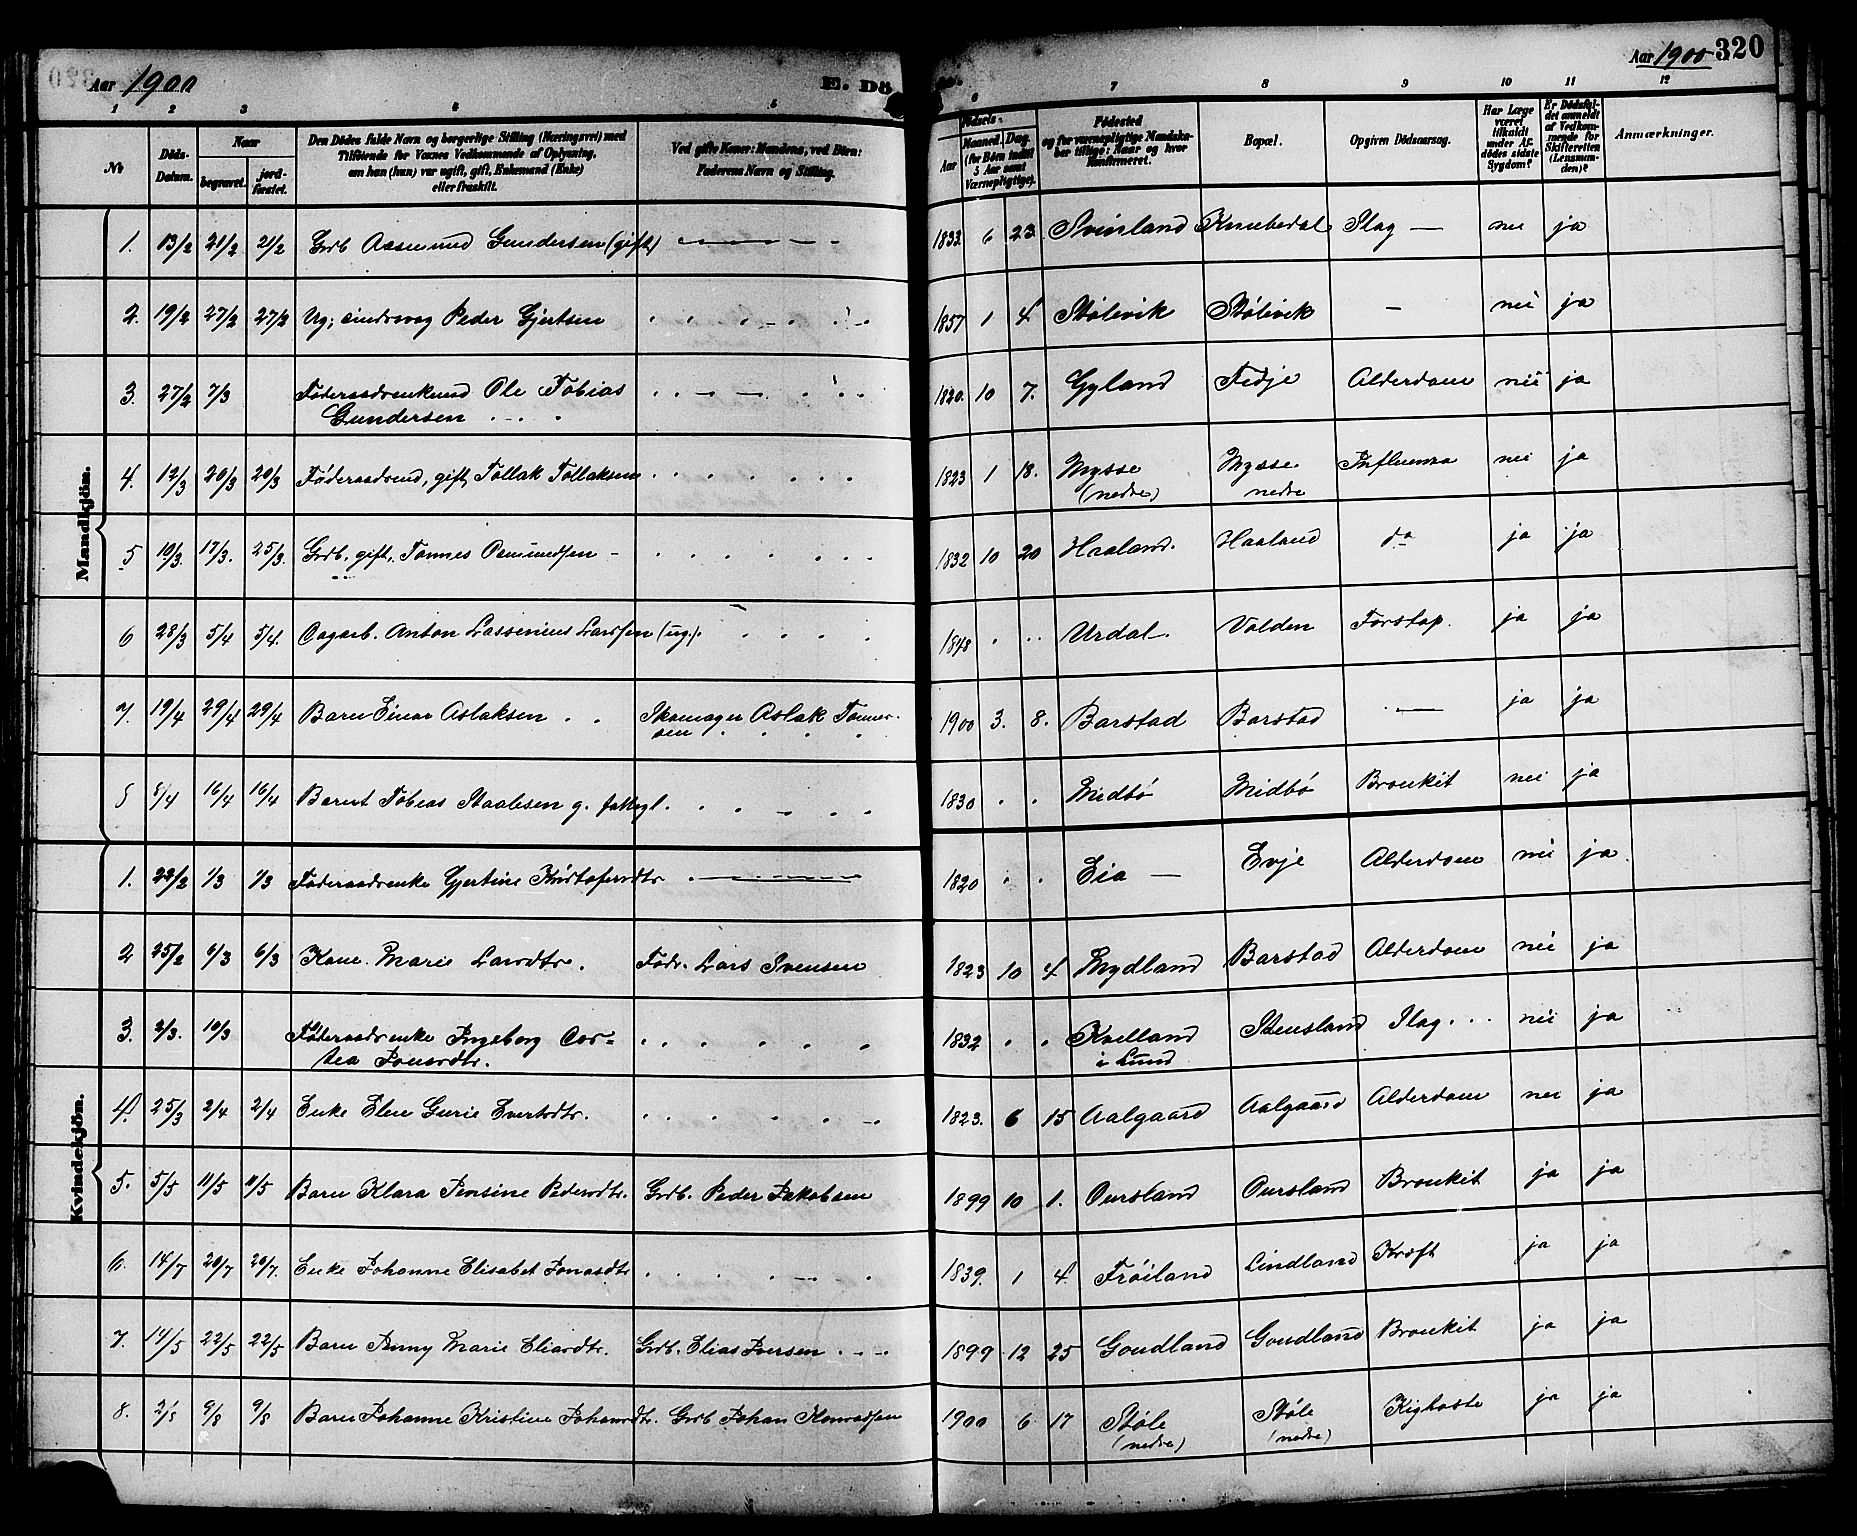 Aar 1900
E. Dö
Aar 1900 320
1 2 3 4 5 6 7 8 9 10 11 12
No
Döds-Datum.
Naar
begravet.
jordfæstet.
Den Dödes fulde Navn og borgerlige Stilling (Næringsvei) med Tilföiende for Voxnes Vedkommende af Oplysning, om han (hun) var ugift, gift, Enkemand (Enke) eller fraskilt.
Ved gifte Koner: Mandens, ved Börn: Faderens Navn og Stilling.
Födsels-
Aar
Maaned. Dag.
(for Börn indtil 5 Aar samt Værnepligtige).
Födested
og for værnepligtige Mandskaber tillige: Naar og hvor konfirmeret.
Bopæl.
Opgiven Dödsaarsag.
Har Læge været tilkaldt under Afdödes sidste Sygdom?
Er Dödsfaldet anmeldt af Vedkommende for Skifteretten (Lensmanden)?
Anmærkninger.
Mandkjön.
1. 13/2 21/2 21/2 Grdb Aasmund Gundersen (gift) 1832 6 23 Svinland Knubedal Slag — nei ja
2. 19/2 27/2 27/2 Ug; sindssvag Peder Gjertsen 1857 1 4 Stölevik Stölevik — nei ja
3. 27/2 7/3 Föderaadsenkmd Ole Tobias
Gundersen 1820. 10 7. Gyland Fedje Alderdom nei ja
4. 12/3 20/3 20/3 Föderaadsmd, gift, Tollak Tollaksen 1823 1 18. Mysse
(nedre) Mysse
nedre Influenza nei ja
5 10/3 17/3. 25/3. Grdb. gift, Tønnes Osmundsen 1832 10 20 Haaland. Haaland do ja ja
6 28/3 5/4 5/4. Anton Lassenius Larssen (ug). 1848 Urdal Valden Forstop. ja ja
7. 19/4 29/4 29/4 Barn Einar Aslaksen Skomager Aslak Tønnes-
sen 1900 3. 8. Barstad Barstad — ja ja
8 8/4 16/4 16/4 Bernt Tobias Staalesen g. fattigl. 1830 Midbö Midbö Bronkit nei ja
Kvindekjön.
1. 22/2 1/3 1/3 Föderaadsenke Gjertine Kristofersdtr 1820 Eia — Evje Alderdom nei ja.
2 25/2 6/3 6/3 Kone Marie Larsdtr. Födr. Lars Svensen 1823 10 4 Mydland Barstad Alderdom nei ja
3. 2/3. 10/3 Föderaadsenke Ingeborg Cor-
tea Jonasdtr. 1832 Kvelland
i Lund Stensland Slag nei ja
4. 25/3 2/4 2/4 Enke Elen Gurie Evertsdtr. 1823. 6 15 Aalgaard Aalgaard Alderdom nei ja
5. 5/5 11/5 11/5 Barn Klara Jensine Pedersdtr. Grdb. Peder Jakobsen 1899 10 1. Oursland Oursland Bronkit ja ja
6. 14/7 20/7 20/7. Enke Johanne Elisabet Jonasdtr 1839. 1 4. Fröiland Lindland Kræft ja ja
7. 14/5 22/5 22/5 Barn Anny Marie Eliasdtr. Grdb. Elias Iversen 1899 12 25 Goudland Goudland Bronkit ja ja
8. 2/8 9/8 9/8 Barn Johanne Kristine Johansdtr. Grdb Johan Konradsen 1900 6 17 Støle
(nedre) Støle
(nedre) Kighoste ja ja